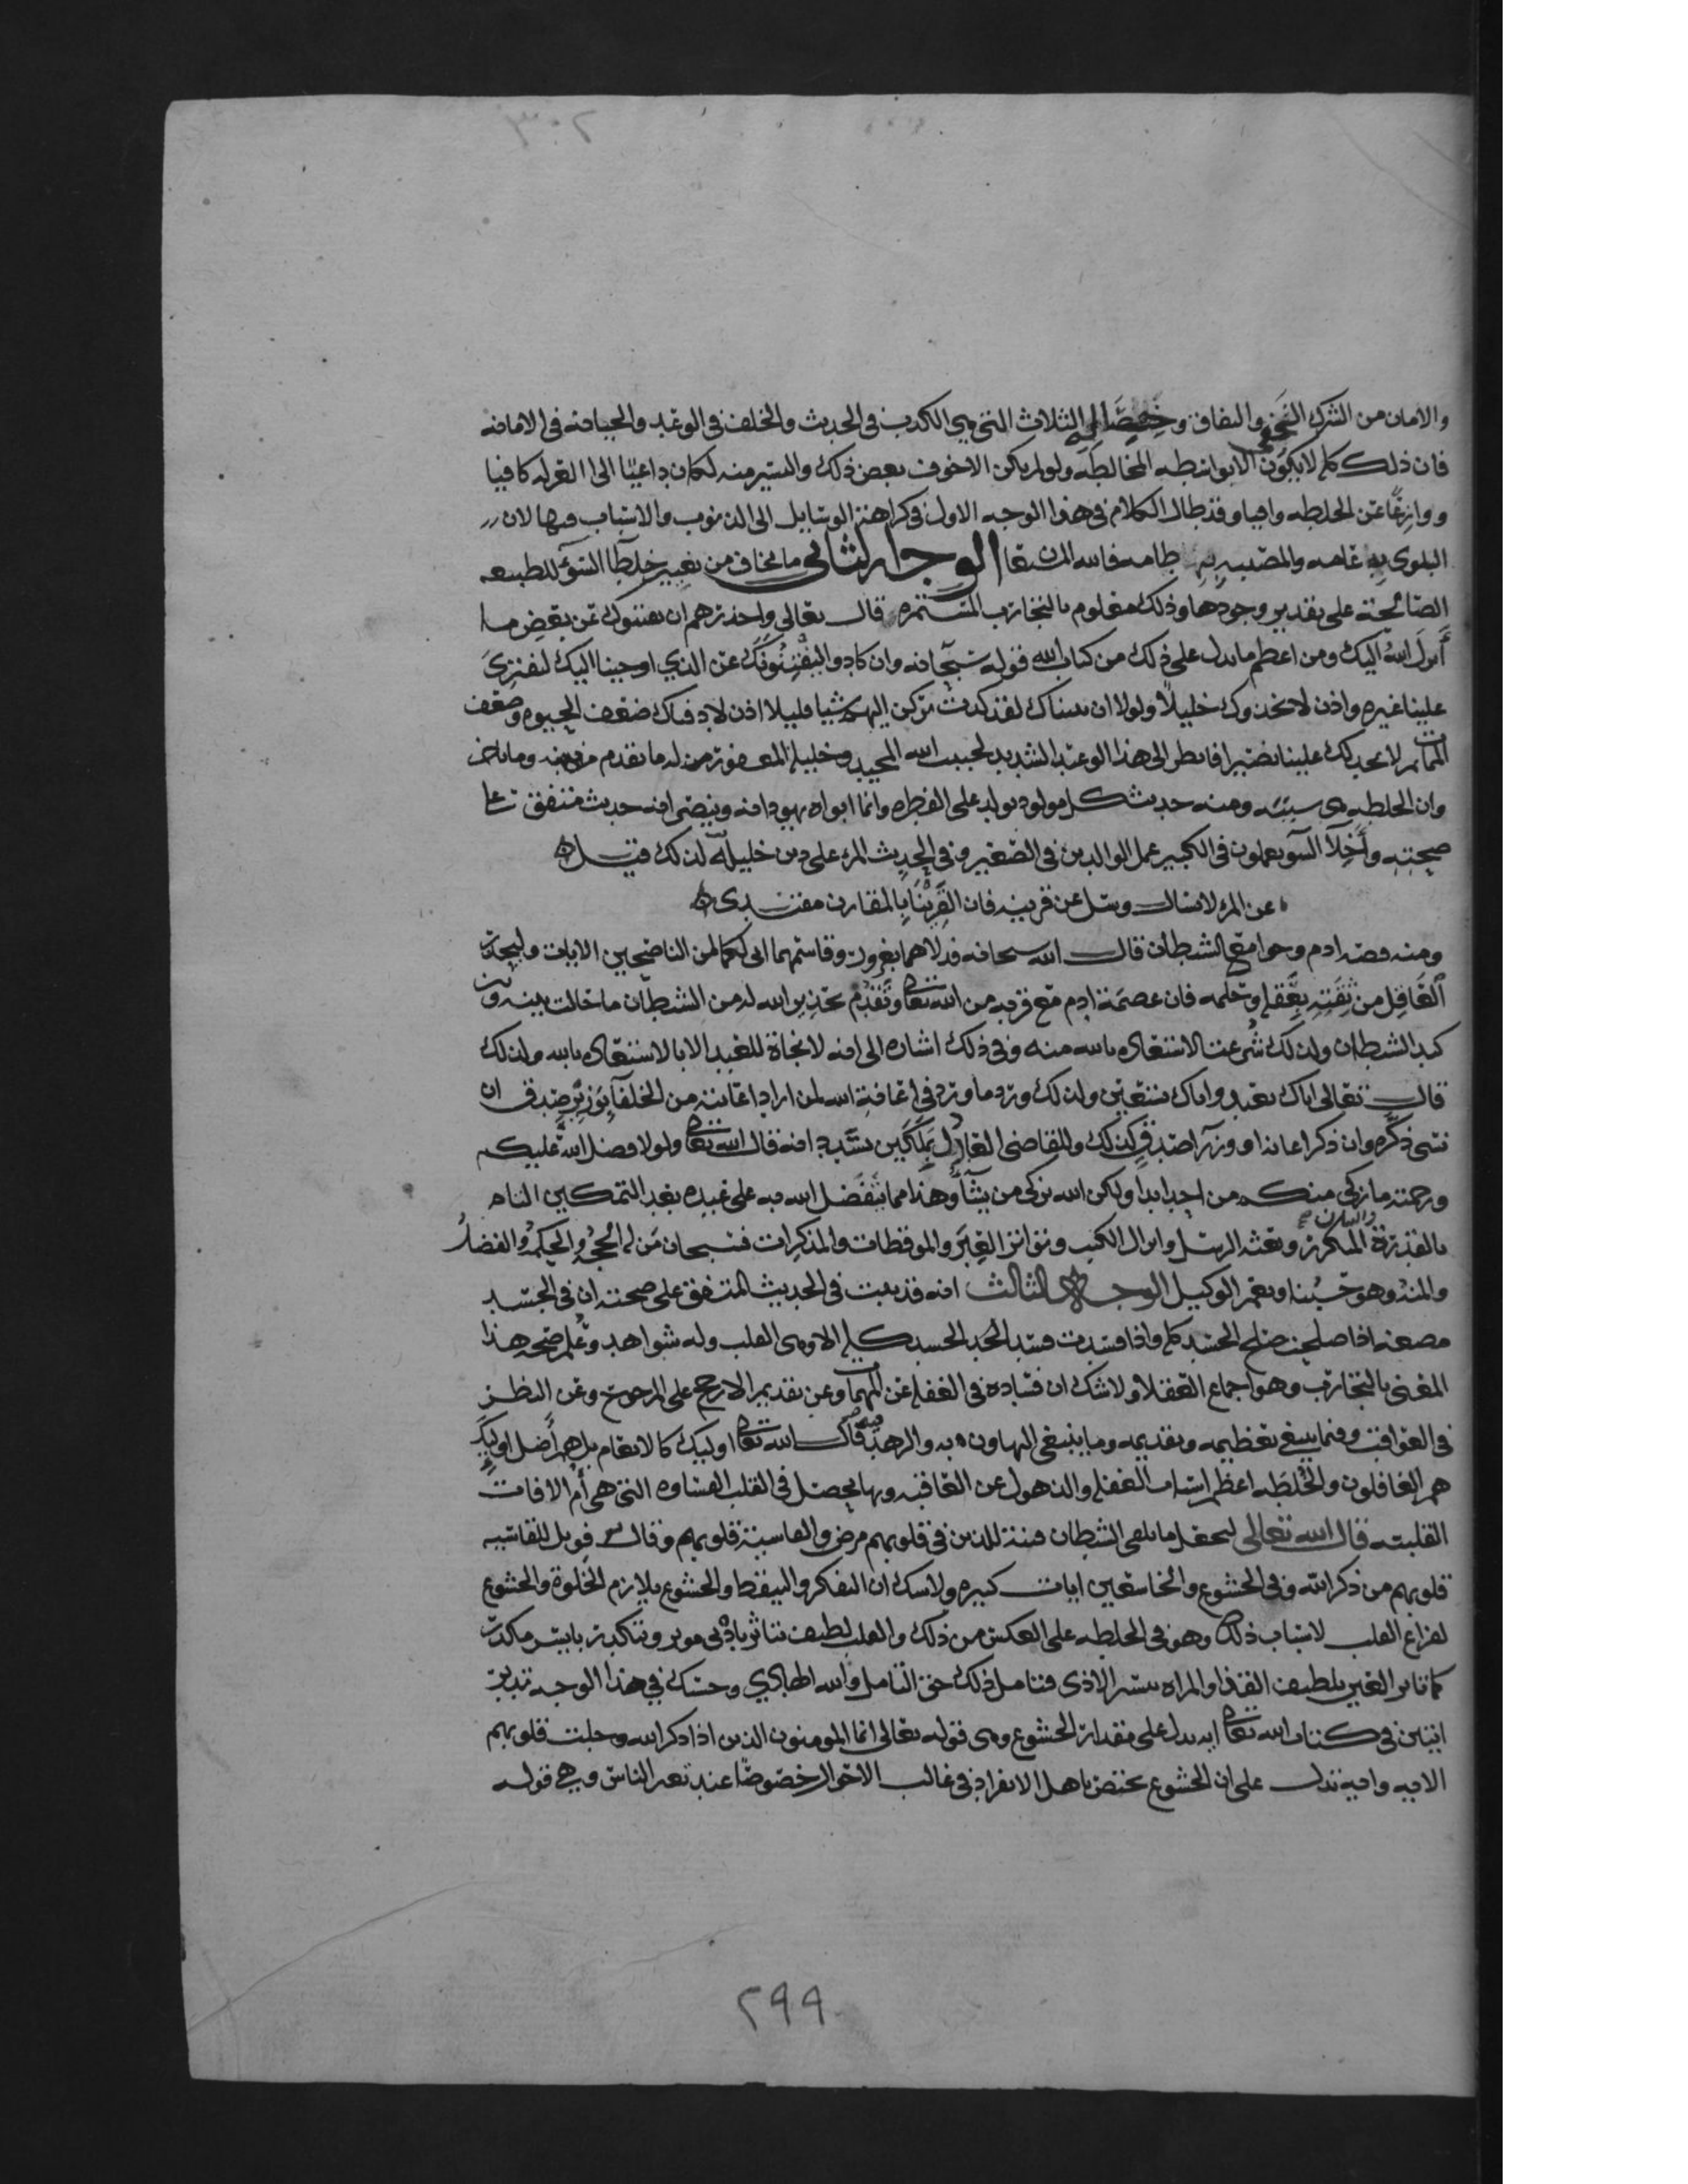 والامان من الشرك الخفي والنفاق وخصاله الثلاث التي هي الكذب في الحديث والخلف في الوعد والخيانة في الامانه
فان ذلك كله لا يكون الا بواسطه المخالطه ولو لم يكن الا خوف بعض ذلك واليسير منه لكان داعيا الى العزله كافيا
ووازعا عن الخلطه وافيا وقد طال الكلام في هذا الوجه الاول في كراهة الوسايل الى الذنوب والاسباب فيها لان
البلوى به عامه والمصيبه به طامه فالله المستعان الوجه الثاني ما يخاف من تغيير خلطا السوء للطبيعه
الصالحة على تقدير وجودها وذلك معلوم بالتجارب المستمره قال تعالى واحذرهم ان يفتنوك عن بعض ما
أنزل الله اليك ومن اعظم ما يدل على ذلك من كتاب الله قوله سبحانه وان كادوا ليفتنونك عن الذي اوحينا اليك لتفتري
علينا غيره واذن لاتخذوك خليلا ولولا ان ثبتناك لقد كدت تركن اليهم شيا قليلا اذن لاذقناك ضعف الحيوه وضعف
الممات ثم لا تجد لك علينا نصيرا فانظر الى هذا الوعيد الشديد لحبيب الله المجيد وخليله المغفور له ما تقدم من ذنبه وما تاخر
وان الخلطه هي سببه ومنه حديث كل مولود يولد على الفطره وانما ابواه يهودانه وينصرانه حديث متفق على
صحته وأخلا السو يعملون في الكبير عمل الوالدين في الصغير وفي الحديث المرء على دين خليله لذلك قيل
عن المرء لا تسال وسل عن قرينه فان القرين بالمقارن مقتدى
ومنه قصه ادم وحوا مع الشيطان قال الله سبحانه فدلاهما بغرور وقاسمهما اني لكما لمن الناصحين الايات وليحذر
العاقل من ثقته بعقله وعلمه فان عصمة ادم مع قربه من الله تعالى وتقدم تحذير الله له من الشيطان ما حالت بينه وبين
كيد الشيطان ولذلك شرعت الاستعاذه بالله منه وفي ذلك اشاره الى انه لا نجاة للعبد الا بالاستعاذه بالله ولذلك
قال تعالى اياك نعبد واياك نستعين ولذلك ورد ما ورد في اعانة الله لمن اراد اعانته من الخلفا بوزير صدق ان
نسى ذكره وان ذكر اعانه او وزرا صدق كذلك وللقاضي العادل بملكين يسددانه قال الله تعالى ولولا فضل الله عليكم
ورحمته ما زكى منكم من احد ابدا ولكن الله يزكي من يشآ وهذا مما يتفضل الله به على عبيده بعد التمكين التام
بالقدرة والبيان المكرر وبعثه الرسل وانزال الكتب وتواتر العبر والموقظات والمذكرات فسبحان من له الحجه والحكمه والفضل
والمنه وهو حسبنا ونعم الوكيل الوجه الثالث انه قد ثبت في الحديث المتفق على صحته ان في الجسد
مضغه اذا صلحت صلح الجسد كله واذا فسدت فسد الجسد كله الا وهي القلب وله شواهد وعلم صحه هذا
المعنى بالتجارب وهو اجماع العقلاء ولا شك ان فساده في الغفله عن المهمات وعن تقديم الارجح على المرجوح وعن النظر
في العواقب وفيما ينبغي تعظيمه وتقديمه وما ينبغي التهاون به والزهد فيه قال الله تعالى اوليك كالانعام بل هم أضل اوليك
هم الغافلون والخلطه اعظم اسباب الغفله والذهول عن العاقبه وبها يحصل في القلب القساوه التي هي أم الافات
القلبيه قال الله تعالى ليجعل ما يلقى الشيطان فتنة للذين في قلوبهم مرض والقاسية قلوبهم وقال فويل للقاسيه
قلوبهم من ذكر الله وفي الخشوع والخاشعين ايات كثيره ولا شك ان التفكر والتيقظ والخشوع يلازم الخلوة والخشوع
لفراغ القلب لاسباب ذلك وهو في الخلطه على العكس من ذلك والقلب لطيف يتاثر بادنى موثر ويتكدر بايسر مكدر
كما تتاثر العين بلطيف القذا والمراه بيسير الاذى فتامل ذلك حق التامل والله الهادي وحسبك في هذا الوجه تدبر
ايتين في كتاب الله تعالى ايه تدل على مقدار الخشوع وهي قوله تعالى انما المومنون الذين اذا ذكر الله وجلت قلوبهم
الايه وايه تدل على ان الخشوع يختص باهل الانفراد في غالب الاحوال خصوصا عند تغير الناس وهي قوله
٢٩٩